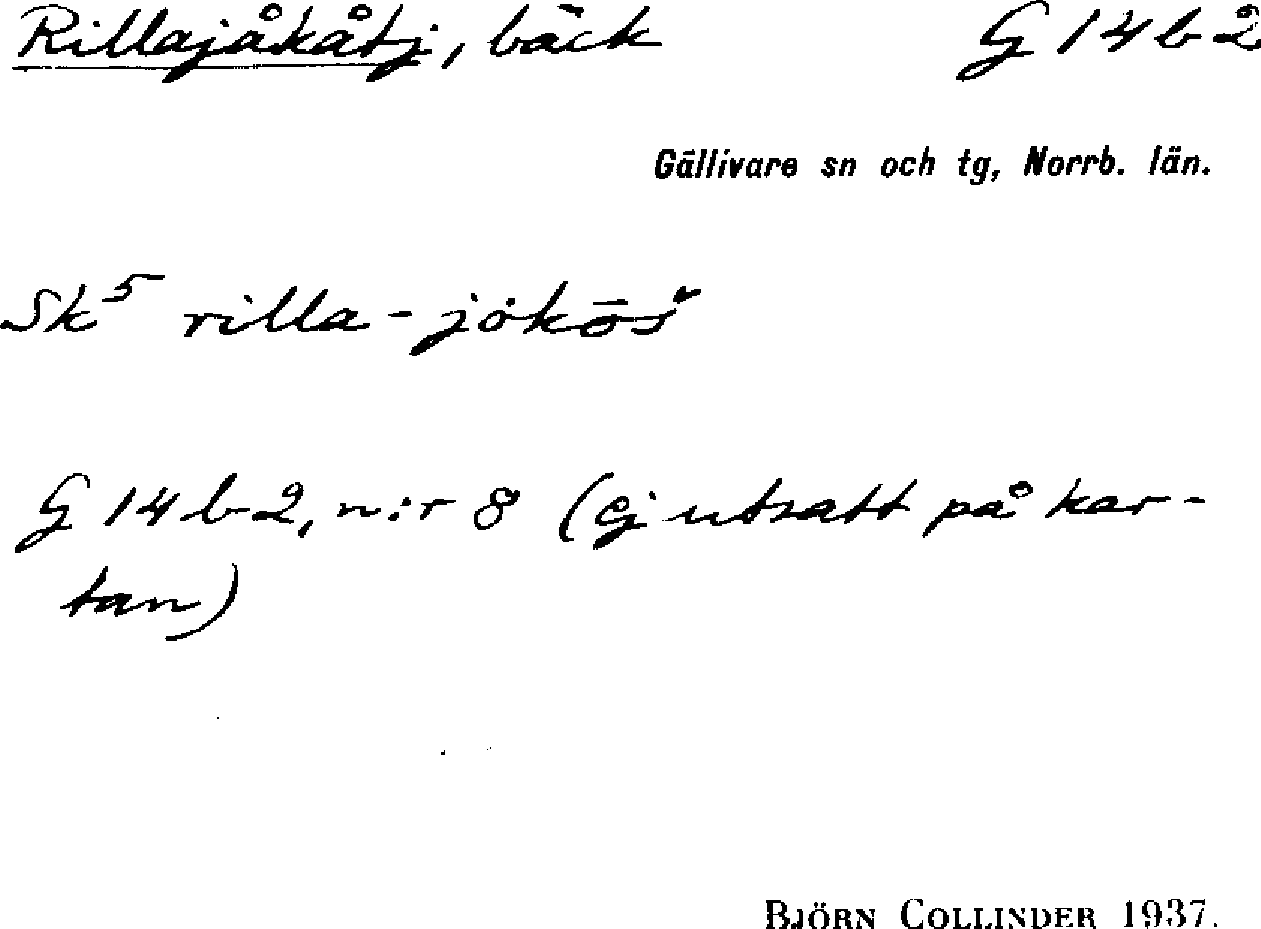 Rillajåkåtj, bäck G 14 b 2
Gällivare sn och tg, Norrb. län.
Sk⁵ rilla-jokōš
G 14 b 2, n:r 8 (ej utsatt på kar-
tan)
BJÖRN COLLINDER 1937.